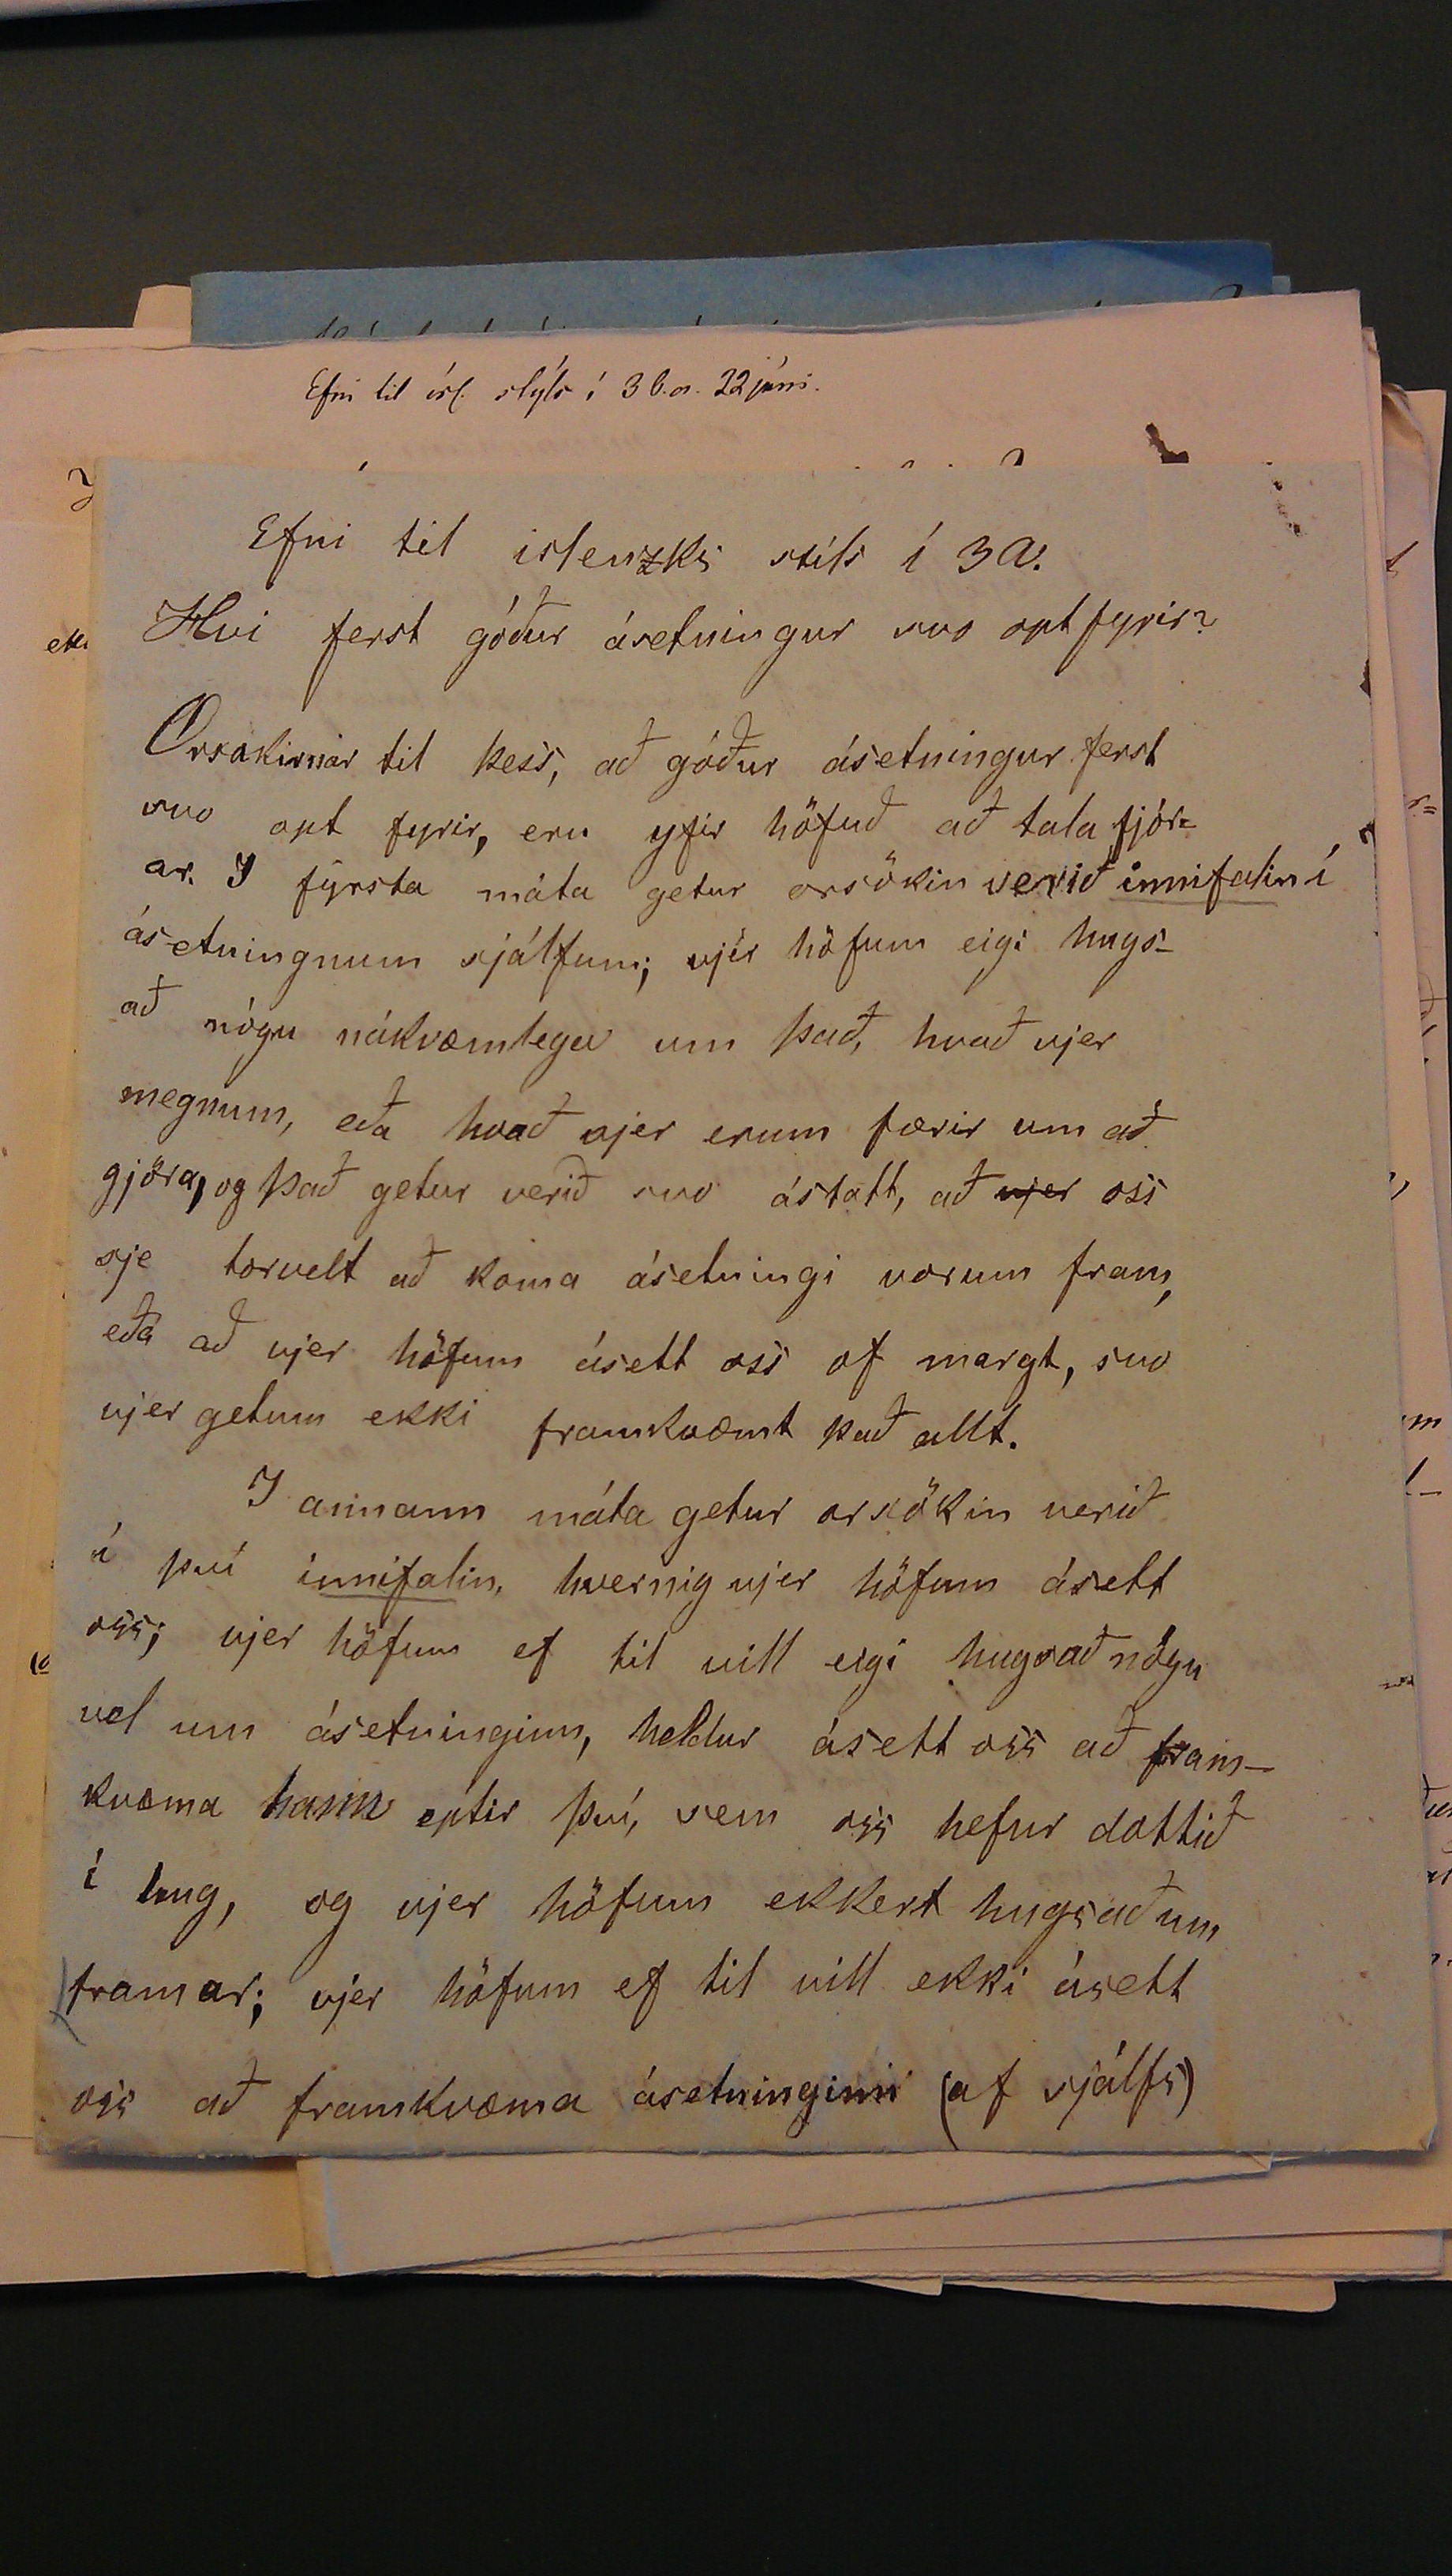 Efni til ísl. stýls í 3 b. a. 22 júni.
Efni til islenzks stíls í 3 A.
Hvi ferst góður ásetningur svo opt fyrir?
Orsakirnar til þess, að góður ásetningur ferst
svo opt fyrir, eru yfir höfuð að tala fjór=
ar. I fyrsta máta getur orsökin verið innifalin í
ásetningnum sjálfum; vjer höfum eigi hugs-
að nógu nákvæmlega um það, hvað vjer
megnum, eða hvað vjer erum færir um að
gjöra, og það getur verið svo ástatt, að vjer oss
sje torvelt að koma ásetningi vorum fram,
eða að vjer höfum ásett oss of margt, svo
vjer getum ekki framkvæmt það allt.
I annann máta getur orsökin verið
í því innifalin, hvernig vjer höfum ásett
oss; vjer höfum ef til vill eigi hugsað nógu
vel um ásetninginn, heldur ásett oss að fram-
kvæma hann eptir því, sem oss hefur dottið
í hug, og vjer höfum ekkert hugsað um
framar; vjer höfum ef til vill ekki ásett
oss að framkvæma ásetninginn (af sjálfs)